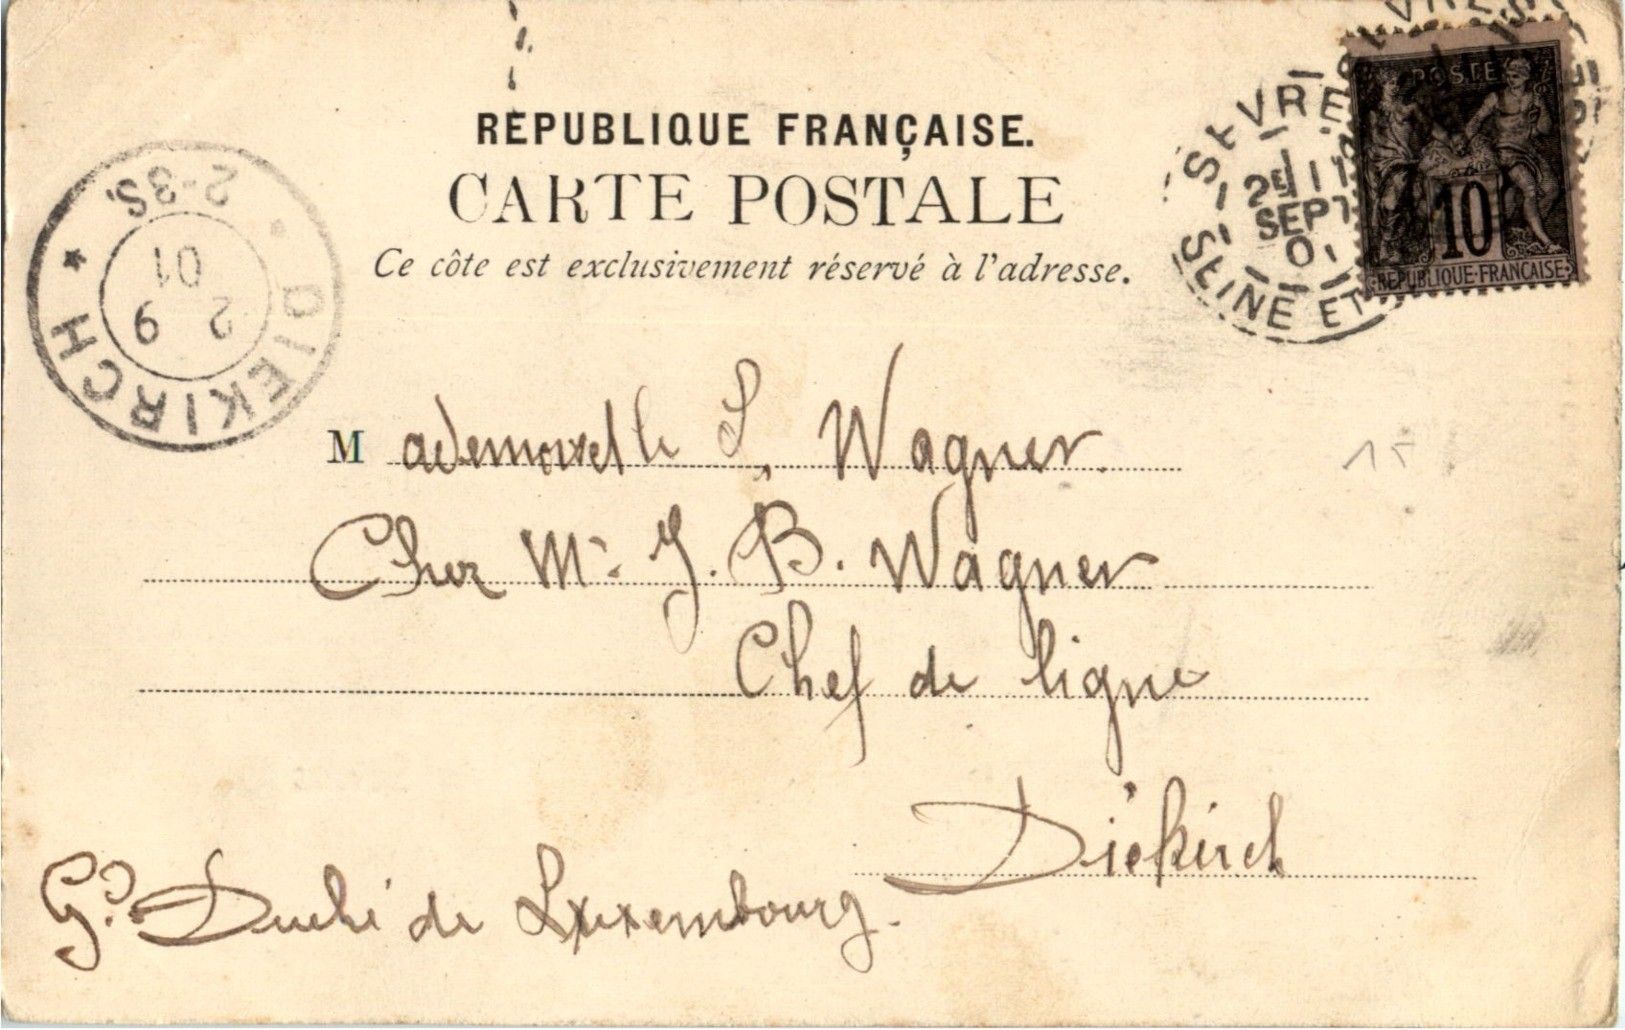 RÉPUBLIQUE FRANÇAISE.
CARTE POSTALE
Ce côte est exclusivement réservé à l'adresse.
POSTE
10
REPUBLIQUE·FRANÇAISE
SEVRES
2E 11
SEPT
01
SEINE ET
DIEKIRCH
2 9
01
2-3S.
Mademoiselle S, Wagner.
Chez Mr. J. B. Wagner
Chef de ligne
Diekirch
Gd. Duché de Luxembourg.
15